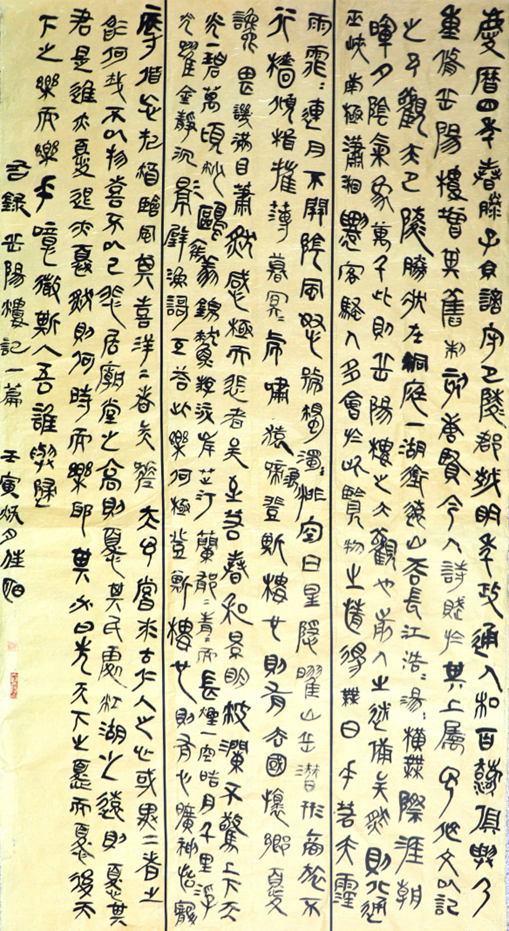 慶曆四年春滕子京謫守巴陵郡越明年政通人和百廢俱興乃
重修岳陽樓增其舊制刻唐賢今人詩賦於其上屬予作文以記
之予觀夫巴陵勝狀在洞庭一湖銜遠山吞長江浩〻湯〻橫無際涯朝
暉夕陰氣象萬千此則岳陽樓之大觀也前人之述備矣然則北通
巫峽南極瀟湘遷客騷人多會於此覽物之情得無乎若夫霪
雨霏〻連月不開陰風怒號濁浪排空日星隱曜山岳潛形商旅不
行檣傾楫摧薄暮冥〻虎嘯猿啼登斯樓也則有去國懷鄉憂
讒畏譏滿目蕭然感極而悲者矣至若春和景明波瀾不驚上下天
光一碧萬頃沙鷗翔集錦鱗游泳岸芷汀蘭郁〻青〻而長煙一空皓月千里浮
光躍金靜沉影璧漁謌互答此樂何極登斯樓也則有心曠神怡寵
辱偕忘把酒臨風其喜洋〻者矣嗟夫予嘗求古仁人之心或異二者之
為何哉不以物喜不以己悲居廟堂之高則憂其民處江湖之遠則憂其
君是進亦憂退亦憂然則何時而樂耶其必曰先天下之憂而憂後天
下之樂而樂乎噫微斯人吾誰與歸
右錄岳陽樓記一篇 壬寅秋月